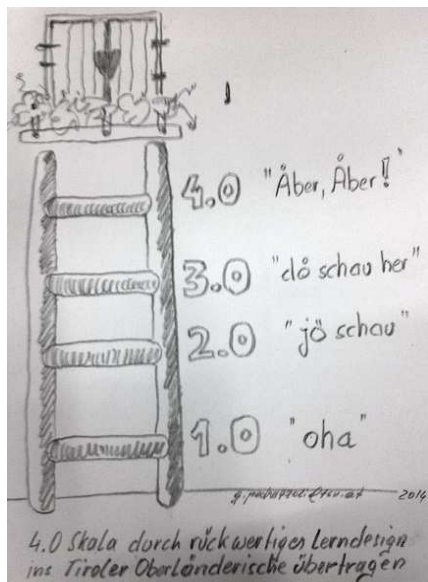 4.0 "Åber, Åber!"
3.0 "då schau her"
2.0 "jö schau"
1.0 "oha"
2014
4.0 Skala durch rückwertiges Lerndesign
ins Tiroler Oberländerische übertragen